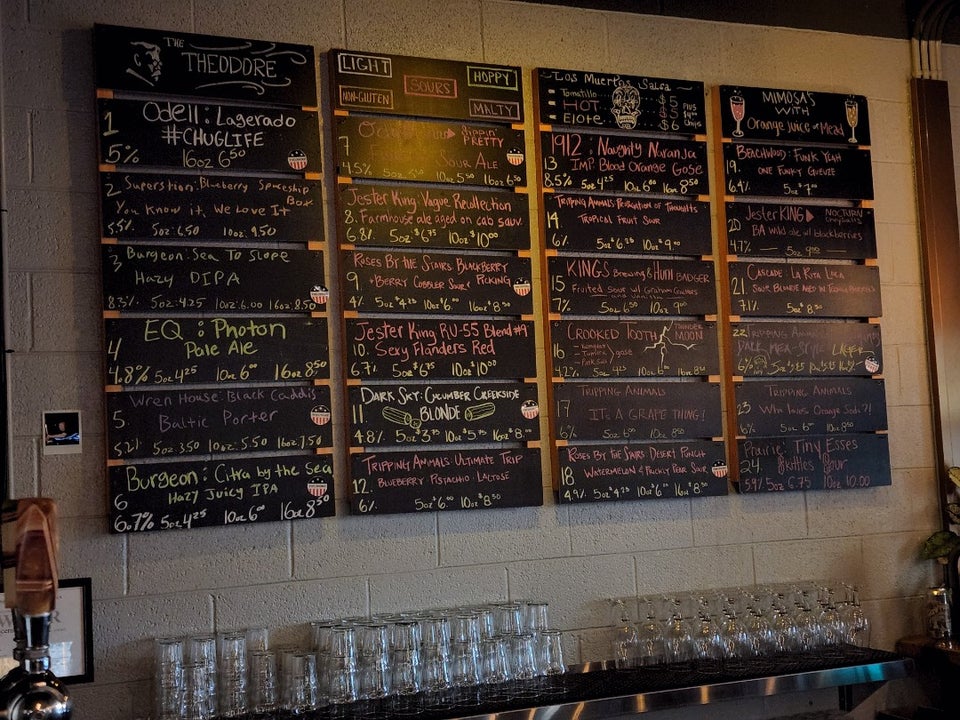 THE
THEODORE
1
Odell: Lagerado
#CHUGLIFE
5% 16oz 6.50
2 Superstition: Blueberry Spaceship
Box
You know it, We Love It
5.5% 5oz 6.50 10oz 9.50
3 Burgeon: Sea To Slope
Hazy DIPA
8.3% 5oz 4.25 10oz 6.00 16oz 8.50
EQ: Photon
4 Pale Ale
4.8% 5oz 4.25 10oz 6.00 16oz 8.50
Wren House: Black Caddis
5. Baltic Porter
5.2% 5oz 3.50 10oz 5.50 16oz 7.50
Burgeon: Citra by the Sea
6 Hazy Juicy IPA
6.7% 5oz 4.25 10oz 6.00 16oz 8.50
LIGHT
SOURS
HOPPY
NON-GLUTEN
MALTY
7
Sippin'
PRETTY
Sour Ale
4.5% 10oz 5.50 16oz 6.50
Jester King: Vague Recollection
8. Farmhouse ale aged on cab sauv.
6.8% 5oz $6.75 10oz $10.00
Roses By the Stairs Blackberry
9 +Berry Cobbler Sour Picking
4% 5oz $4.25 10oz $6.00 16oz $8.50
Jester King RU-55 Blend #9
10. Sexy Flanders Red
6.7% 5oz $6.75 10oz $10.00
Dark Sky: Cucumber Creekside
11. BLONDE
4.8% 5oz $3.75 10oz $5.75 16oz $8.00
Tripping Animals: Ultimate Trip
12. Blueberry Pistachio Lactose
6% 5oz $6.00 10oz $8.50
Los Muertos Salsa
Tomatillo $5
HOT $5
Elote $6
1912: Naughty Naranja
13 Imp Blood Orange Gose
8.5% 5oz 4.25 10oz 6.00 16oz 8.50
Tripping Animals:
14 Tropical Fruit Sour
6% 5oz $6.25 10oz $9.00
15 KINGS Brewing & Hunn BADGER
Fruited Sour w/ Graham Crackers
and Vanilla
7% 5oz 6.50 10oz 9.00
Crooked Tooth
THUNDER
MOON
16
gose
4.2%
Tripping Animals
17 It's A Grape Thing!
6% 5oz $6.00 10oz $8.50
Roses By the Stairs Desert Punch
18 Watermelon & Prickly Pear Sour
4.9% 5oz $4.25 10oz $6.00 16oz $8.50
MIMOSA'S
WITH
Orange Juice or Mead
19. Beachwood: Funk Yeah
One Funky Gueuze
6.4% 5oz $7.00
20 Jester KING
BA Wild ale w/ blackberries
4.7% 5oz 9.50
Cascade: La Rita Loca
21 Sour Blonde Aged in Tequila Barrels
7.1% 5oz $8.50
22 Tripping Animals
6%
Tripping Animals
23 Who loves Orange Soda?!
6% 5oz $6.00 10oz $8.50
Prairie: Tiny Esses
24. Skittles Sour
5.9% 5oz 6.75 10oz 10.00